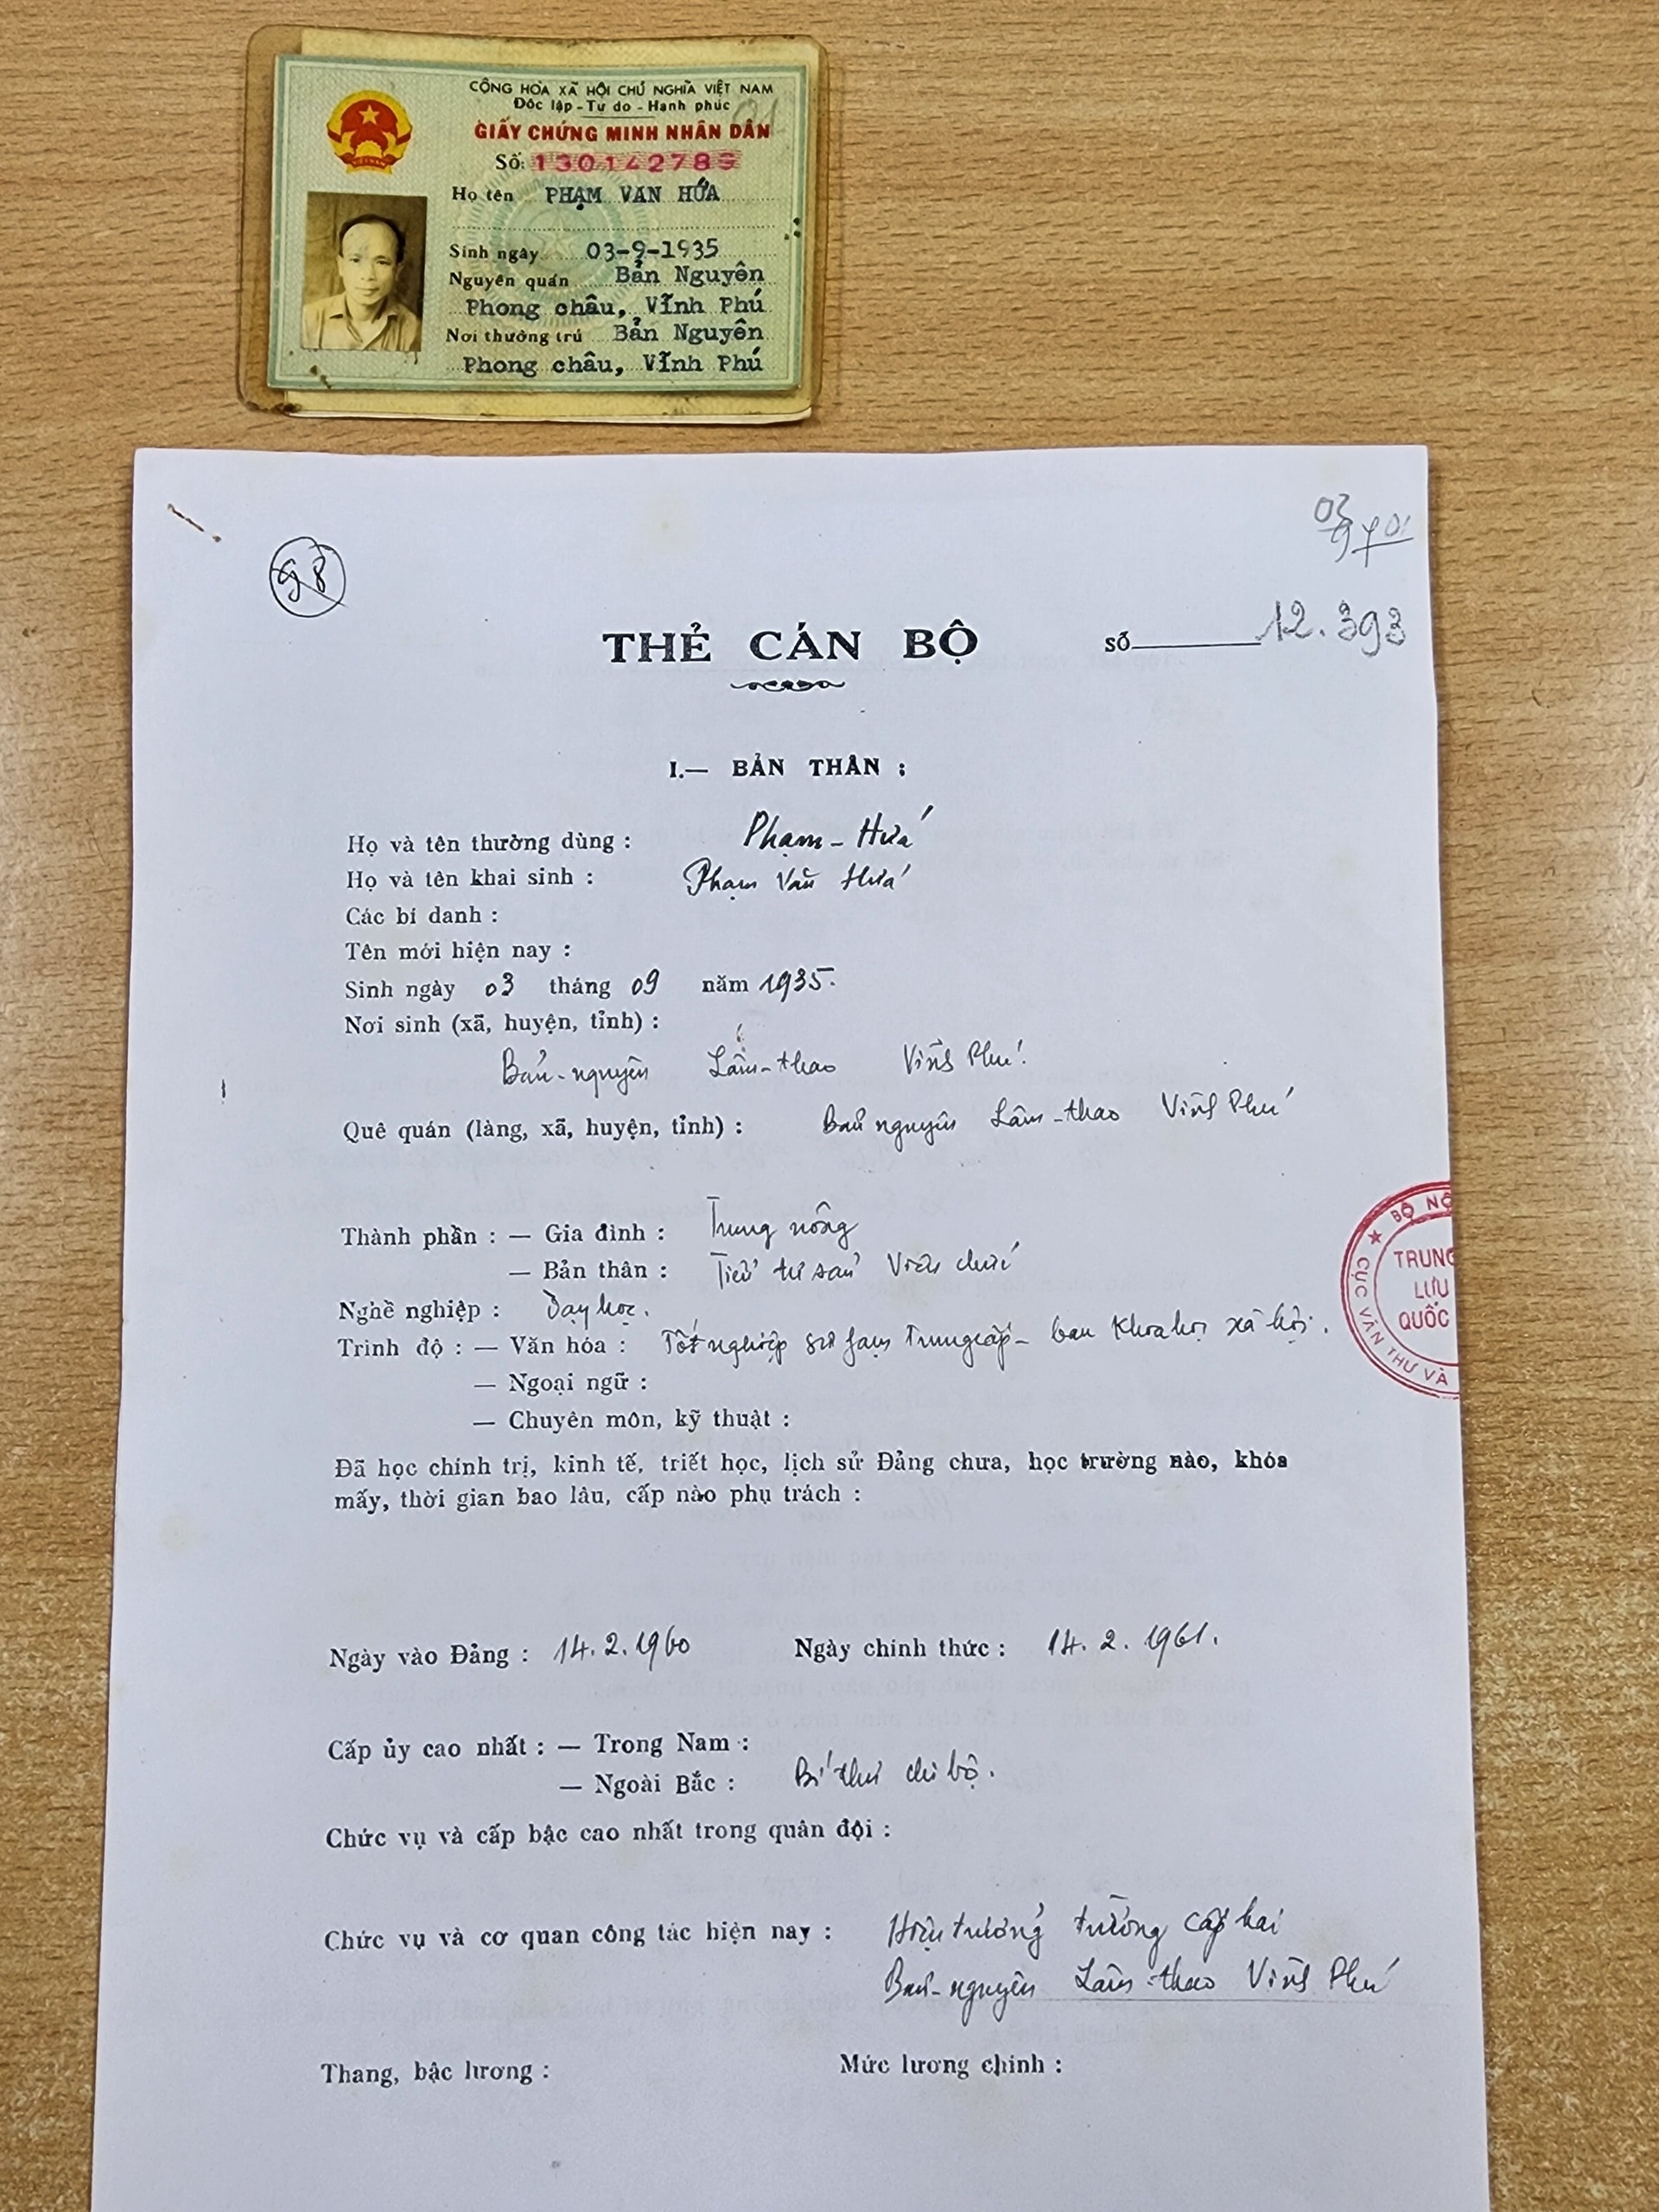 CỘNG HÒA XÃ HỘI CHỦ NGHĨA VIỆT NAM
Độc lập - Tự do - Hạnh phúc
GIẤY CHỨNG MINH NHÂN DÂN
Số: 130142789
Họ tên PHẠM VĂN HỨA
Sinh ngày 03-9-1935
Nguyên quán Bản Nguyên
Phong châu, Vĩnh Phú
Nơi thường trú Bản Nguyên
Phong châu, Vĩnh Phú
98
THẺ CÁN BỘ
số 12.393
I.— BẢN THÂN :
Họ và tên thường dùng : Phạm - Hứa
Họ và tên khai sinh : Phạm Văn Hứa
Các bí danh :
Tên mới hiện nay :
Sinh ngày 03 tháng 09 năm 1935.
Nơi sinh (xã, huyện, tỉnh) :
Bản-nguyên Lâm-thao Vĩnh Phú
Quê quán (làng, xã, huyện, tỉnh) : Bản nguyên Lâm-thao Vĩnh Phú
Thành phần : — Gia đình : Trung nông
— Bản thân : Tiểu tư sản Viên chức
Nghề nghiệp : Dạy học.
Trình độ : — Văn hóa : Tốt nghiệp sư fạm Trung cấp - ban Khoa học xã hội.
— Ngoại ngữ :
— Chuyên môn, kỹ thuật :
Đã học chính trị, kinh tế, triết học, lịch sử Đảng chưa, học trường nào, khóa
mấy, thời gian bao lâu, cấp nào phụ trách :
Ngày vào Đảng : 14.2.1960 Ngày chính thức : 14.2.1961.
Cấp ủy cao nhất : — Trong Nam :
— Ngoài Bắc : Bí thư chi bộ.
Chức vụ và cấp bậc cao nhất trong quân đội :
Chức vụ và cơ quan công tác hiện nay : Hiệu trưởng trường cấp hai
Bản-nguyên Lâm-thao Vĩnh Phú
Thang, bậc lương : Mức lương chính :
BỘ NỘ
CỤC VĂN THƯ VÀ
TRUNG
LƯU
QUỐC